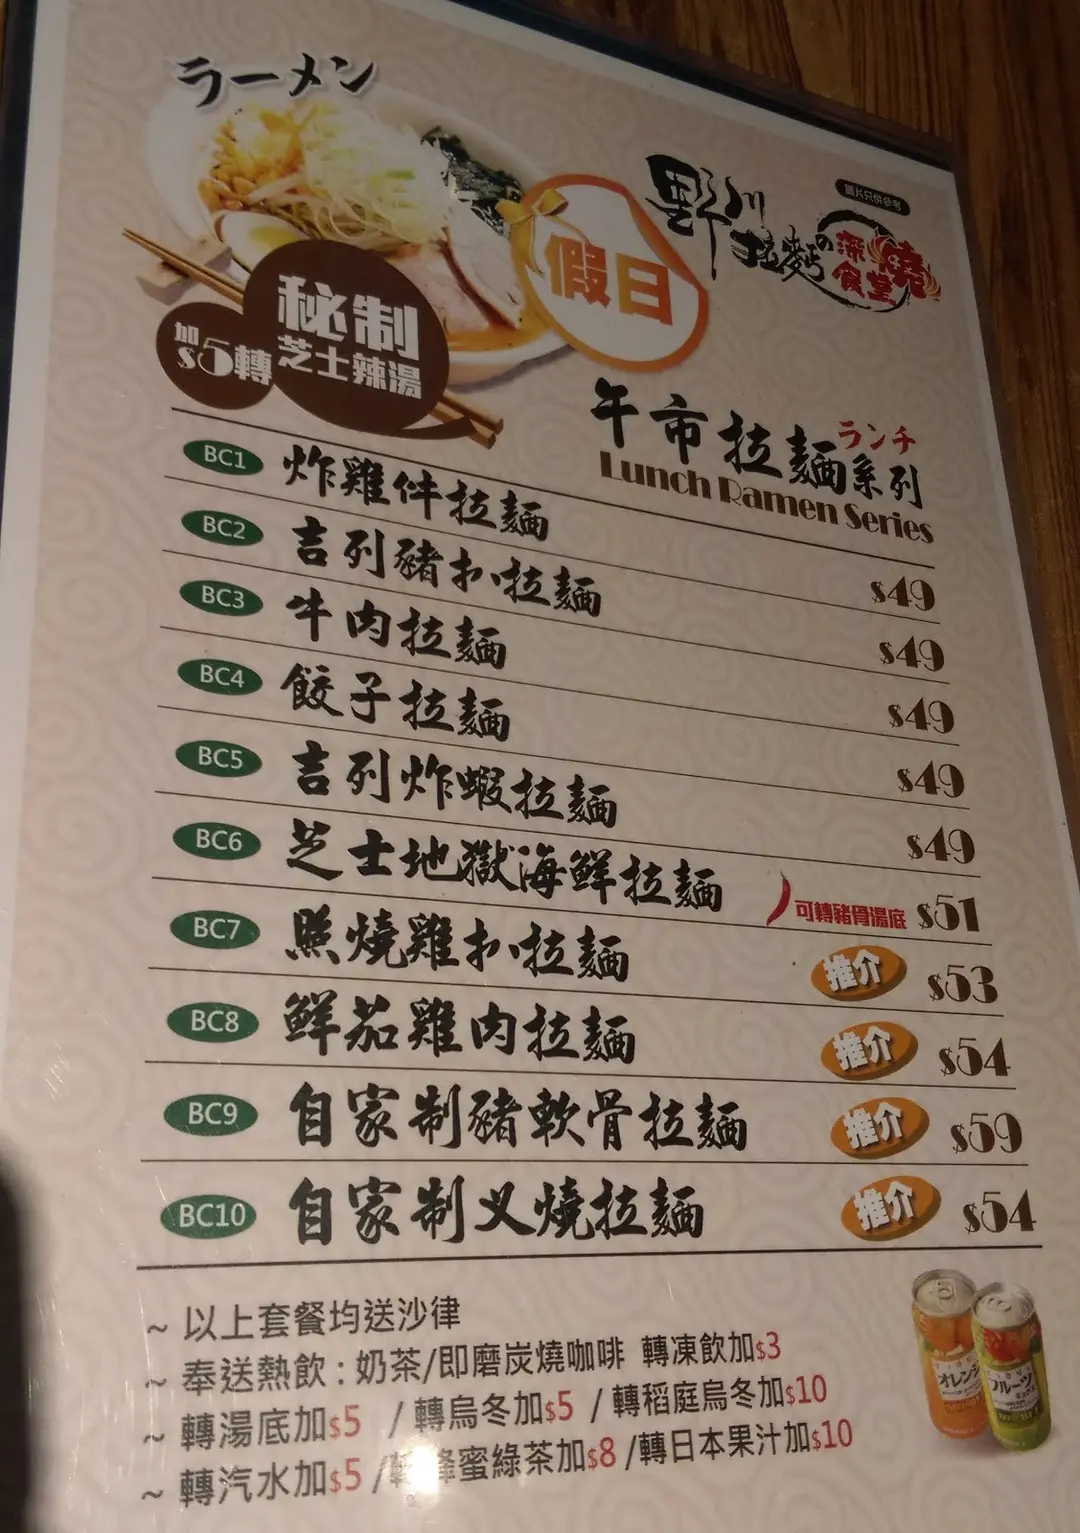 ラーメン
圖片只供參考
野川
拉麵の深燒
食堂
假日
秘制
芝士辣湯
加
$5轉
午市拉麵系列
ランチ
Lunch Ramen Series
BC1 炸雞件拉麵 $49
BC2 吉列豬扒拉麵 $49
BC3 牛肉拉麵 $49
BC4 餃子拉麵 $49
BC5 吉列炸蝦拉麵 $49
BC6 芝士地獄海鮮拉麵 可轉豬骨湯底 $51
BC7 照燒雞扒拉麵 推介 $53
BC8 鮮茄雞肉拉麵 推介 $54
BC9 自家制豬軟骨拉麵 推介 $59
BC10 自家制叉燒拉麵 推介 $54
~ 以上套餐均送沙律
~ 奉送熱飲 : 奶茶/即磨炭燒咖啡 轉凍飲加$3
~ 轉湯底加$5 / 轉烏冬加$5 / 轉稻庭烏冬加$10
~ 轉汽水加$5 /轉蜂蜜綠茶加$8 /轉日本果汁加$10
オレンジ
フルーツ